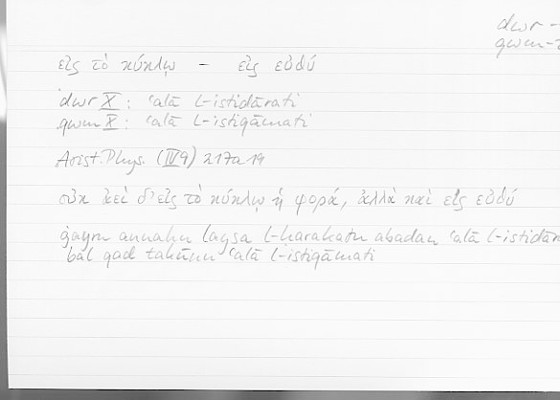 dwr -
qwm -
εἰς τὸ κύκλῳ – εἰς εὐθύ
dwr X : ʿalā l-istidārati
qwm X : ʿalā l-istiqāmati
Arist. Phys. (IV 9) 217a19
οὐκ ἀεὶ δ' εἰς τὸ κύκλῳ ἡ φορά, ἀλλὰ καὶ εἰς εὐθύ
ġayru annahu laysa l-ḥarakatu abadan ʿalā l-istidār
bal qad takūnu ʿalā l-istiqāmati